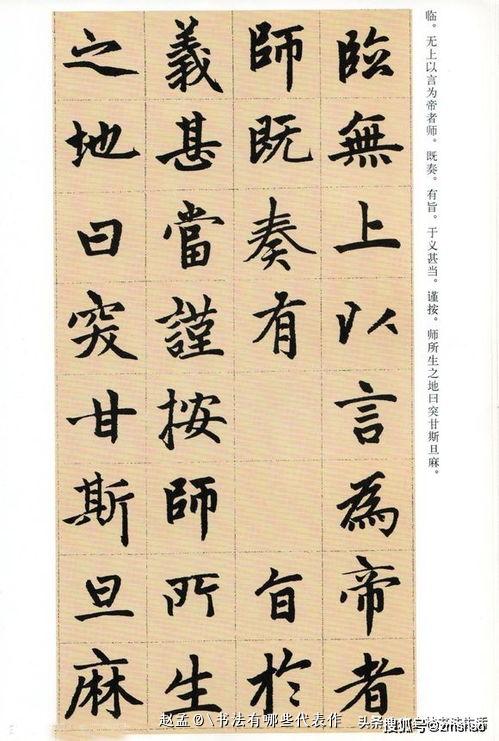 临。无上以言为帝者师。既奏。有旨。于义甚当。谨按。师所生之地曰突甘斯旦麻。
臨無上以言為帝者
師既奏有旨於
義甚當謹按師所生
之地曰突甘斯旦麻
赵孟0\书法有哪些代表作
头条
搜狐号@zhshso